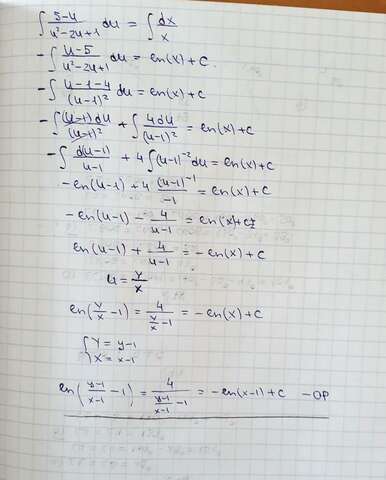 ∫ (5-u)/(u²-2u+1) du = ∫ dx/x
-∫ (u-5)/(u²-2u+1) du = ln(x)+c
-∫ (u-1-4)/(u-1)² du = ln(x)+c
-∫ (u-1)du/(u-1)² + ∫ 4du/(u-1)² = ln(x)+c
-∫ d(u-1)/(u-1) + 4∫(u-1)⁻² du = ln(x)+c
-ln(u-1)+4 (u-1)⁻¹/-1 = ln(x)+c
-ln(u-1) - 4/(u-1) = ln(x)+c
ln(u-1) + 4/(u-1) = -ln(x)+c
u = Y/X
ln(Y/X -1) = 4/(Y/X -1) = -ln(x)+c
{ Y = y-1
X = x-1
ln((y-1)/(x-1) -1) = 4/((y-1)/(x-1) -1) = -ln(x-1)+c - OP